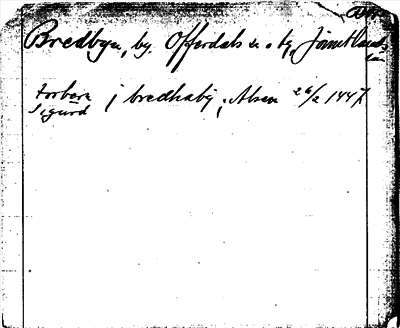 Bredbyn, by, Offerdals s. o. tg, Jämtlands
län
Torbørn
Sigurd j bredkaby, Alsen 26/2 1447